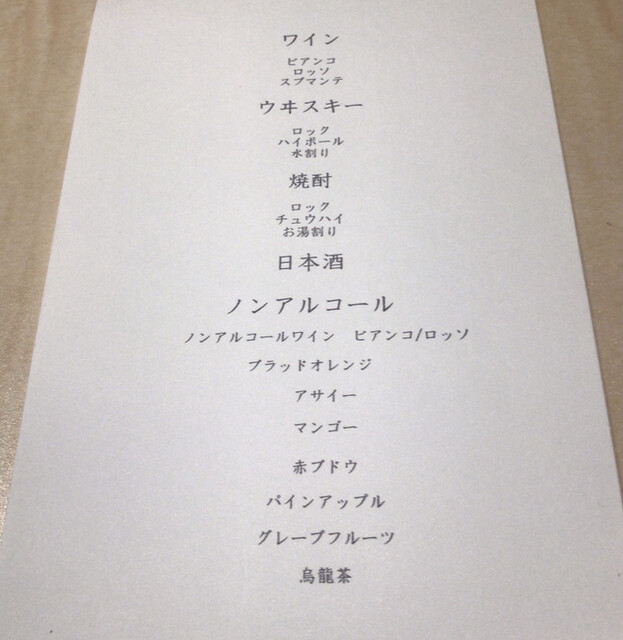 ワイン
ビアンコ
ロッソ
スプマンテ
ウヰスキー
ロック
ハイボール
水割り
焼酎
ロック
チュウハイ
お湯割り
日本酒
ノンアルコール
ノンアルコールワイン　ビアンコ/ロッソ
ブラッドオレンジ
アサイー
マンゴー
赤ブドウ
パインアップル
グレープフルーツ
烏龍茶